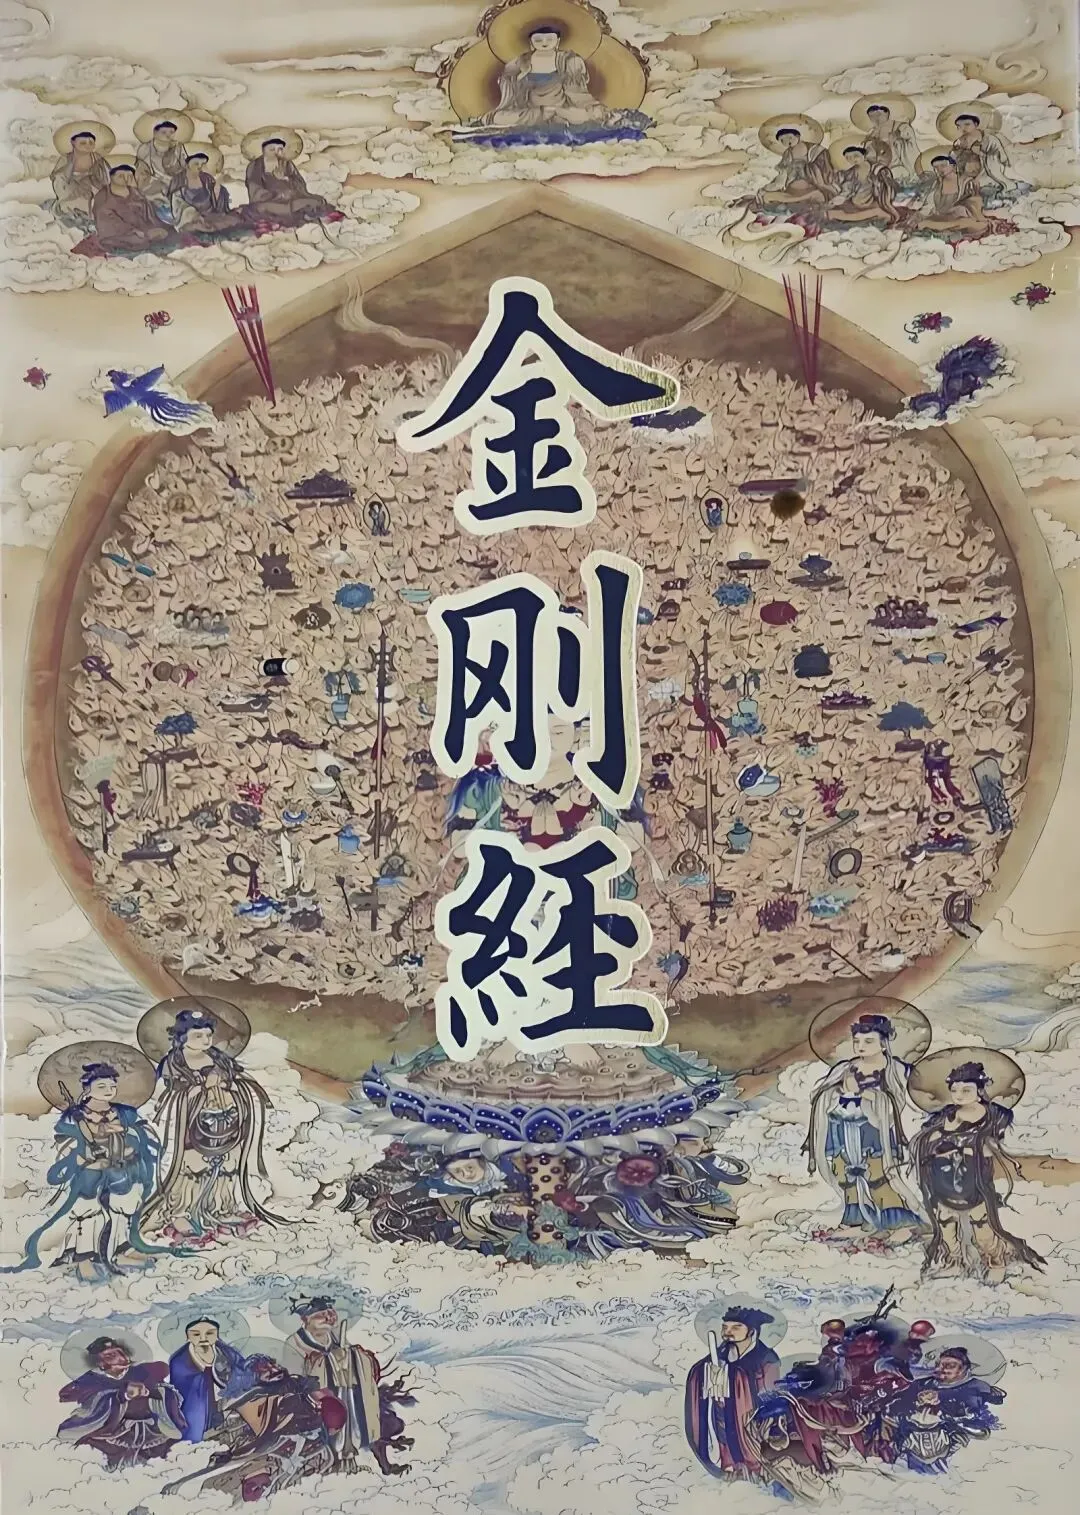 金刚經